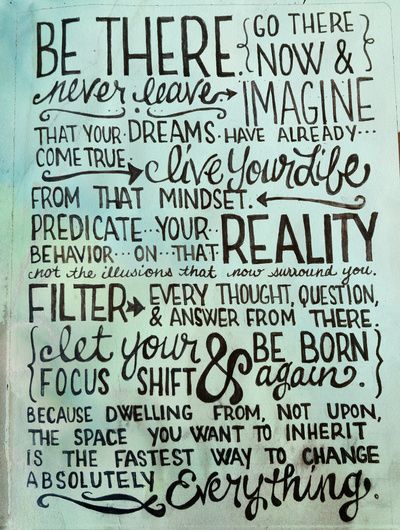 BE THERE. {GO THERE
NOW &}
never leave. IMAGINE
THAT YOUR DREAMS HAVE ALREADY...
COME TRUE. live your life
FROM THAT MINDSET.
PREDICATE YOUR..
BEHAVIOR...ON..THAT REALITY
not the illusions that now surround you.
FILTER EVERY THOUGHT, QUESTION,
& ANSWER FROM THERE.
{let your & BE BORN
FOCUS SHIFT again.}
BECAUSE DWELLING FROM, NOT UPON,
THE SPACE YOU WANT TO INHERIT
IS THE FASTEST WAY TO CHANGE
ABSOLUTELY Everything.